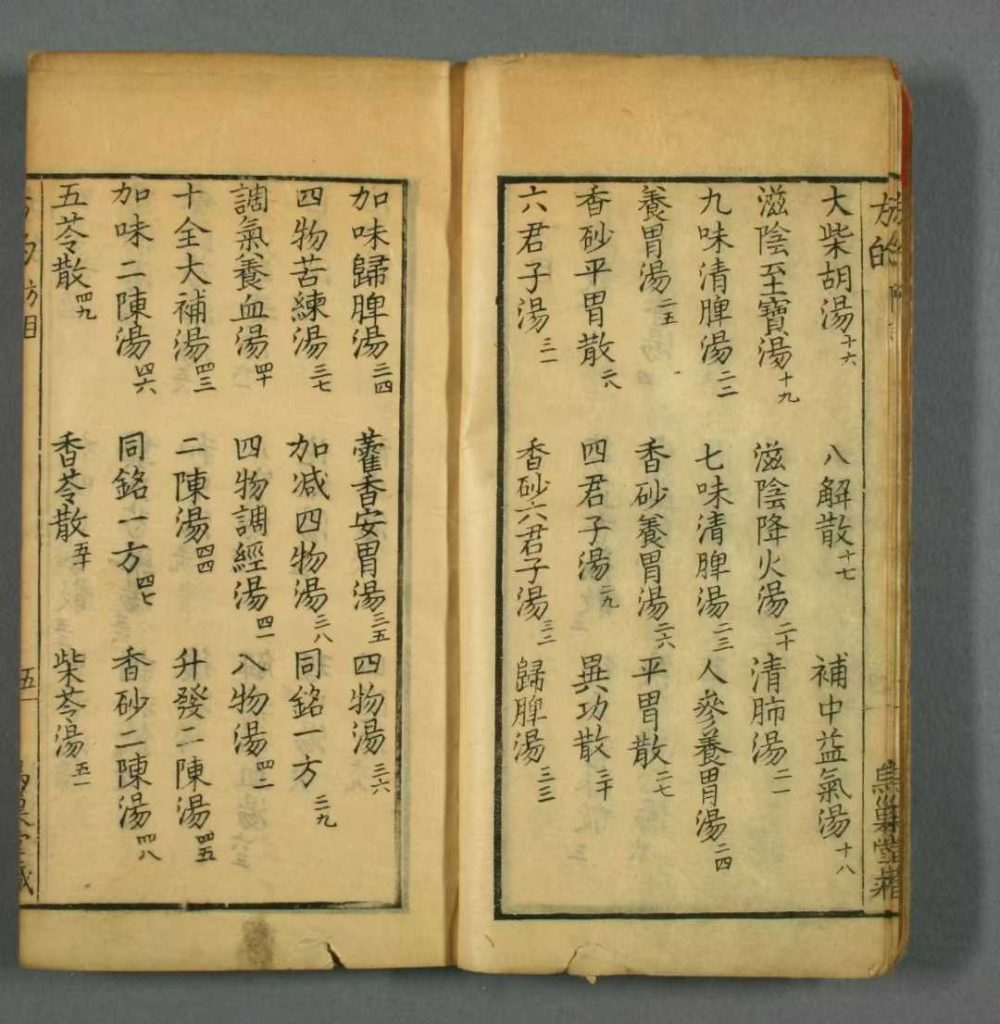 大柴胡湯十六 八解散十七 補中益氣湯十八
滋陰至寶湯十九 滋陰降火湯二十 清肺湯二一
九味清脾湯二二 七味清脾湯二三 人參養胃湯二四
養胃湯二五 香砂養胃湯二六 平胃散二七
香砂平胃散二八 四君子湯二九 異功散三十
六君子湯三一 香砂六君子湯三二 歸脾湯三三
加味歸脾湯三四 藿香安胃湯三五 四物湯三六
四物苦練湯三七 加减四物湯三八 同銘一方三九
調氣養血湯四十 四物調經湯四一 八物湯四二
十全大補湯四三 二陳湯四四 升發二陳湯四五
加味二陳湯四六 同銘一方四七 香砂二陳湯四八
五苓散四九 香苓散五十 柴苓湯五一